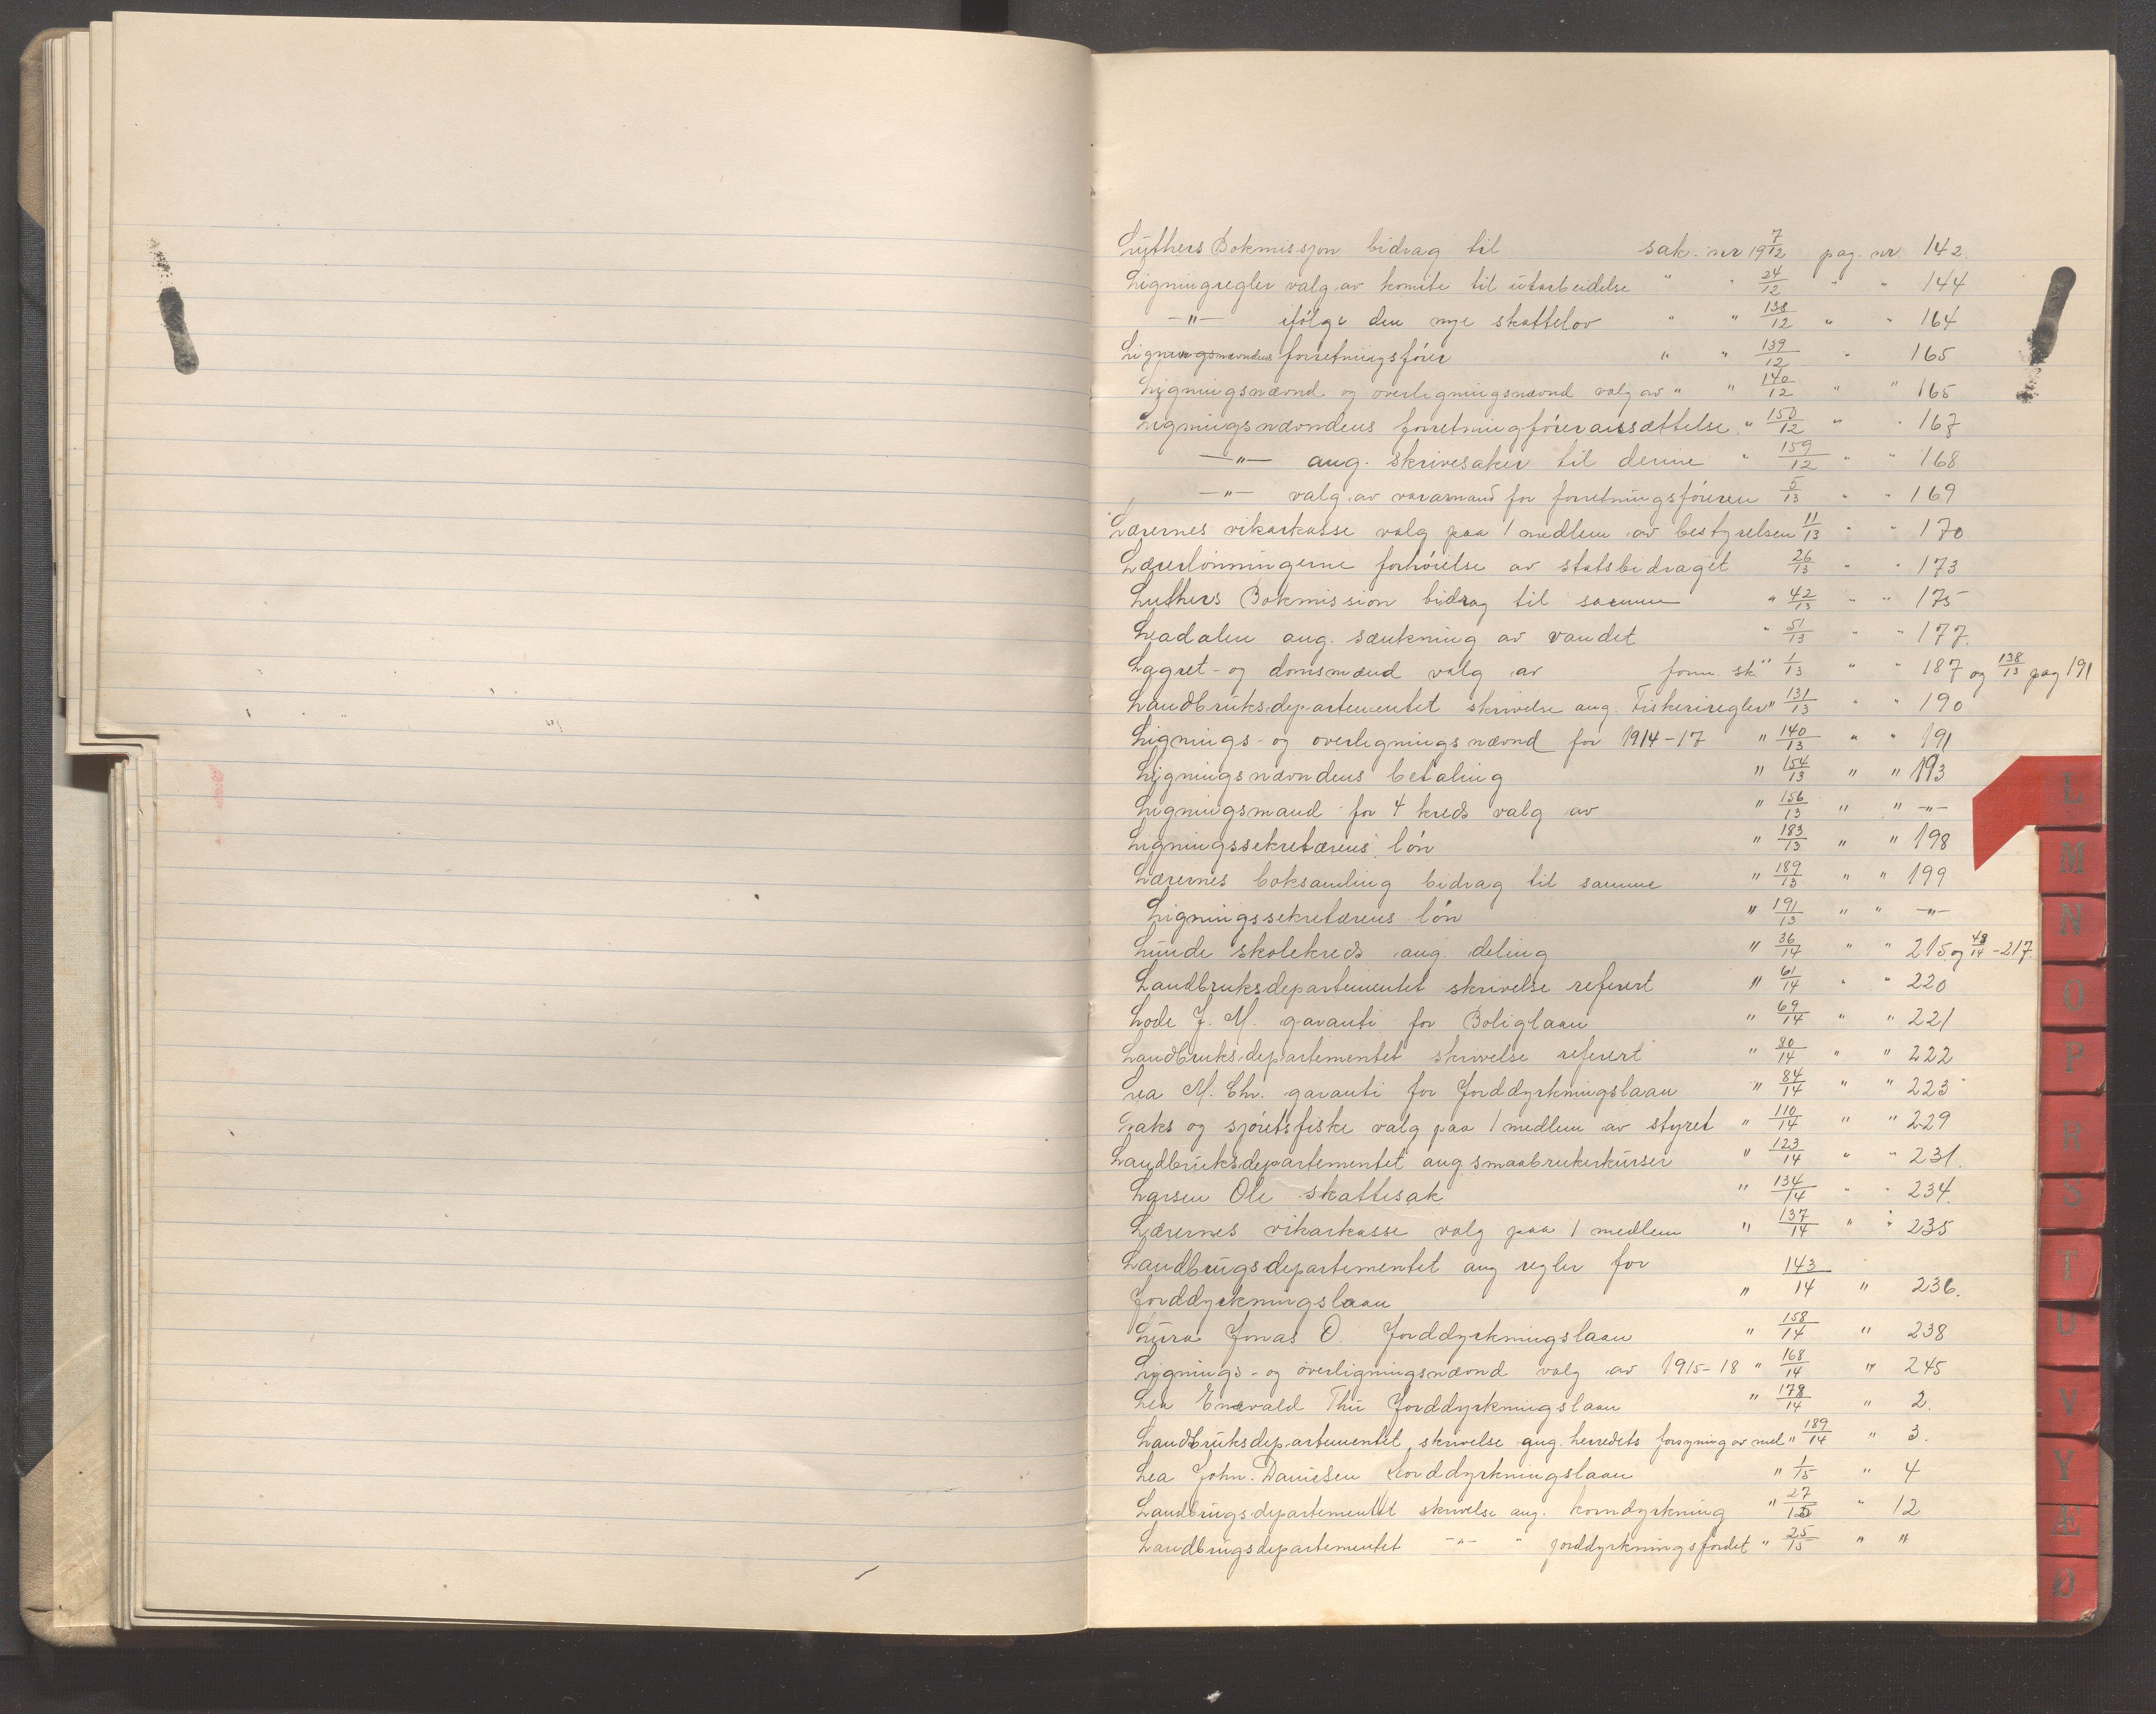 Luthers Bokmissjon bidrag til sak. nr 19 7/12 pag. nr. 142.
Ligningregler valg av komite til utarbeidelse " " 24/12 " " 144
—"— ifølge den nye skattelov " " 138/12 " " 164
Ligningsnævndens forretningsfører " " 139/12 " 165
Ligningsnævnd og overligningsnævnd valg av " " 140/12 " " 165
Ligningsnævndens forretningføreransættelse " 150/12 " " 167
—"— ang. skrivesaker til denne " 159/12 " " 168
—"— valg av varamand for forretningsføreren 5/13 " " 169
Lærernes vikarkasse valg paa 1 medlem av bestyrelsen 11/13 " " 170
Lærerlønningerne forhøielse av statsbidraget 26/13 " " 173
Luthers Bokmission bidrag til samme " 42/13 " " 175
Leadalen ang. sænkning av vandet " 51/13 " " 177.
Lagret- og domsmænd valg av form. sk " 1/13 " " 187 og 138/13 pag 191
Landbruksdepartementet skrivelse ang. Fiskeriregler " 131/13 " " 190
Lignings- og overlignings nævnd for 1914-17 " 140/13 " " 191
Ligningsnævndens betaling " 154/13 " " 193
Ligningsmand for 4 kreds valg av " 156/13 " " —"—
Ligningssekretærens løn " 183/13 " " 198
Lærernes boksamling bidrag til samme " 189/13 " " 199
Ligningssekretærens løn " 191/13 " " —"—
Lunde skolekreds ang. deling " 36/14 " " 215 og 48/14 - 217.
Landbruksdepartementet skrivelse referert " 61/14 " " 220
Lode J. M. garanti for Boliglaan " 69/14 " " 221
Landbruksdepartementet skrivelse referert " 80/14 " " 222
Lea M. Chr. garanti for Jorddyrkningslaan " 84/14 " " 223
Laks og sjøretsfiske valg paa 1 medlem av styret " 110/14 " " 229
Landbruksdepartementet ang. smaabrukerkurser " 123/14 " " 231.
Larsen Ole skattesak " 134/14 " " 234.
Lærernes vikarkasse valg paa 1 medlem " 137/14 " " 235
Landbrugsdepartementet ang regler for 143
Jorddyrkningslaan " 14 " 236.
Lura Jonas O. Jorddyrkningslaan " 158/14 " 238
Lignings- og overligningsnævnd valg av 1915-18 " 168/14 " 245
Lea Enevald Thu Jorddyrkningslaan " 178/14 " 2.
Landbruksdepartementet skrivelse ang. herredets forsyning av mel " 189/14 " 3.
Lea John. Danielsen Jorddyrkningslaan " 1/15 " 4
Landbrugsdepartementet skrivelse ang. korndyrkning " 27/15 " 12
Landbrugsdepartementet —"— " jorddyrkningsfondet " 25/15 " "
L
M
N
O
P
R
S
T
U
V
Y
Æ
Ø